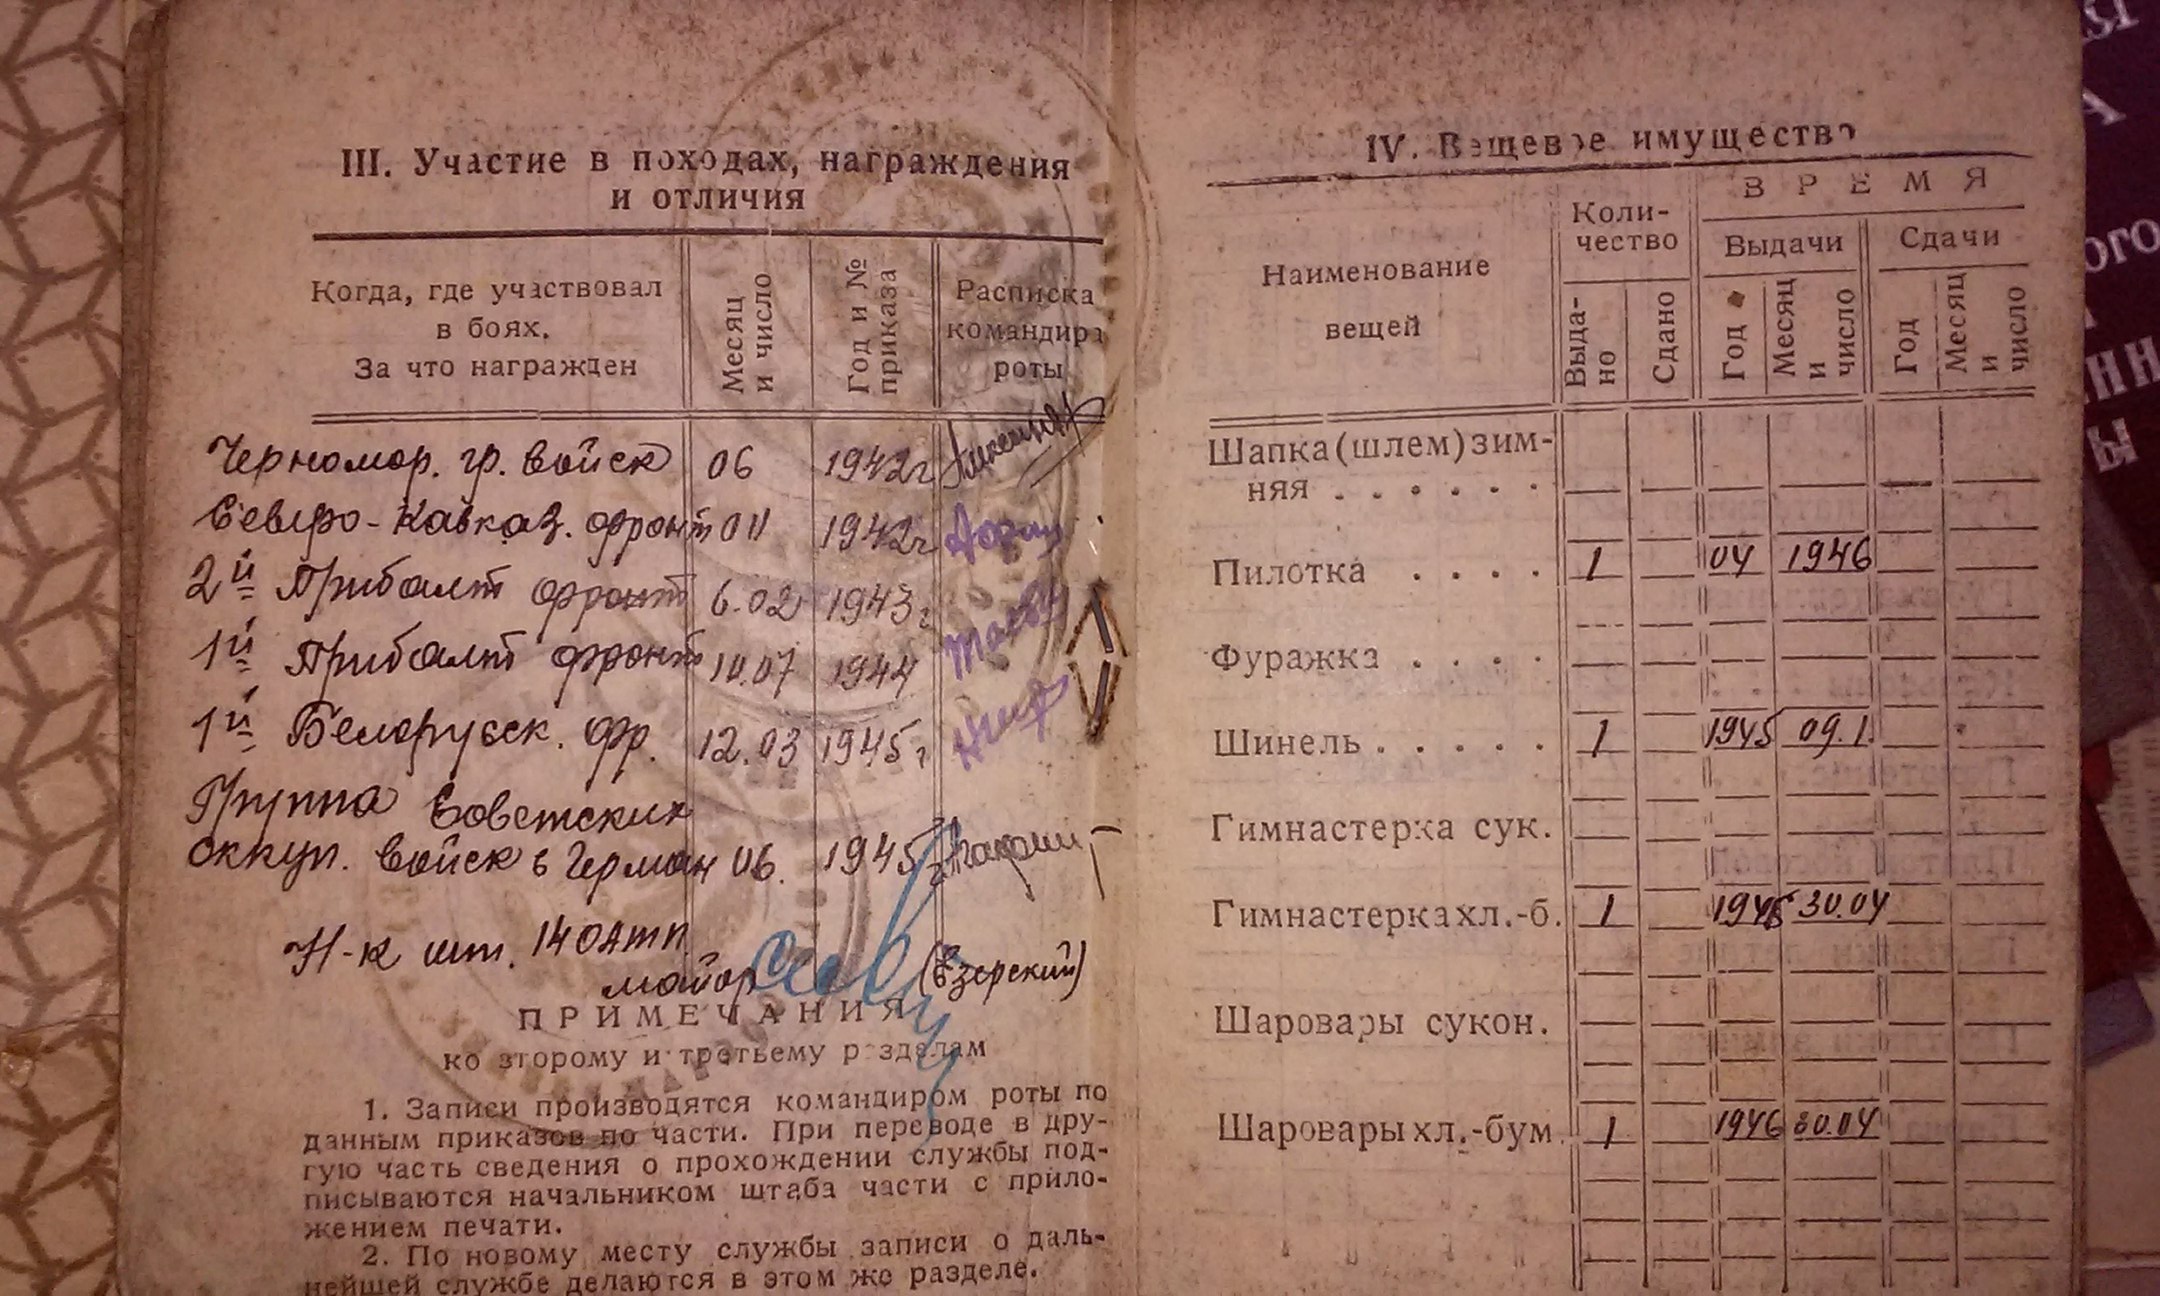 III. Участие в походах, награждения
и отличия
Когда, где участвовал
в боях.
За что награжден
Месяц
и число
Год и №
приказа
Расписка
командира
роты
Черномор. гр. войск 06 1942г
Северо-Кавказ. фронт 011 1942г
2й Прибалт фронт 6.02 1943г
1й Прибалт фронт 10.07 1944
1й Белорусск. фр. 12.03 1945г
Группа Советских
оккуп. войск в Герман 06. 1945г
Н-к шт. 140АМП
майор (Езерский)
ПРИМЕЧАНИЯ
ко второму и третьему разделам
1. Записи производятся командиром роты по
данным приказов по части. При переводе в дру-
гую часть сведения о прохождении службы под-
писываются начальником штаба части с прило-
жением печати.
2. По новому месту службы записи о даль-
нейшей службе делаются в этом же разделе.
IV. Вещевое имущество
Наименование
вещей
Коли-
чество
ВРЕМЯ
Выдачи
Сдачи
Выда-
но
Сдано
Год
Месяц
и
число
Год
Месяц
и
число
Шапка (шлем) зим-
няя . . . . . .
Пилотка . . . . 1 04 1946
Фуражка . . . .
Шинель . . . . . 1 1945 09.1.
Гимнастерка сук.
Гимнастерка хл.-б. 1 1946 30.04
Шаровары сукон.
Шаровары хл.-бум. 1 1946 30.04
ого